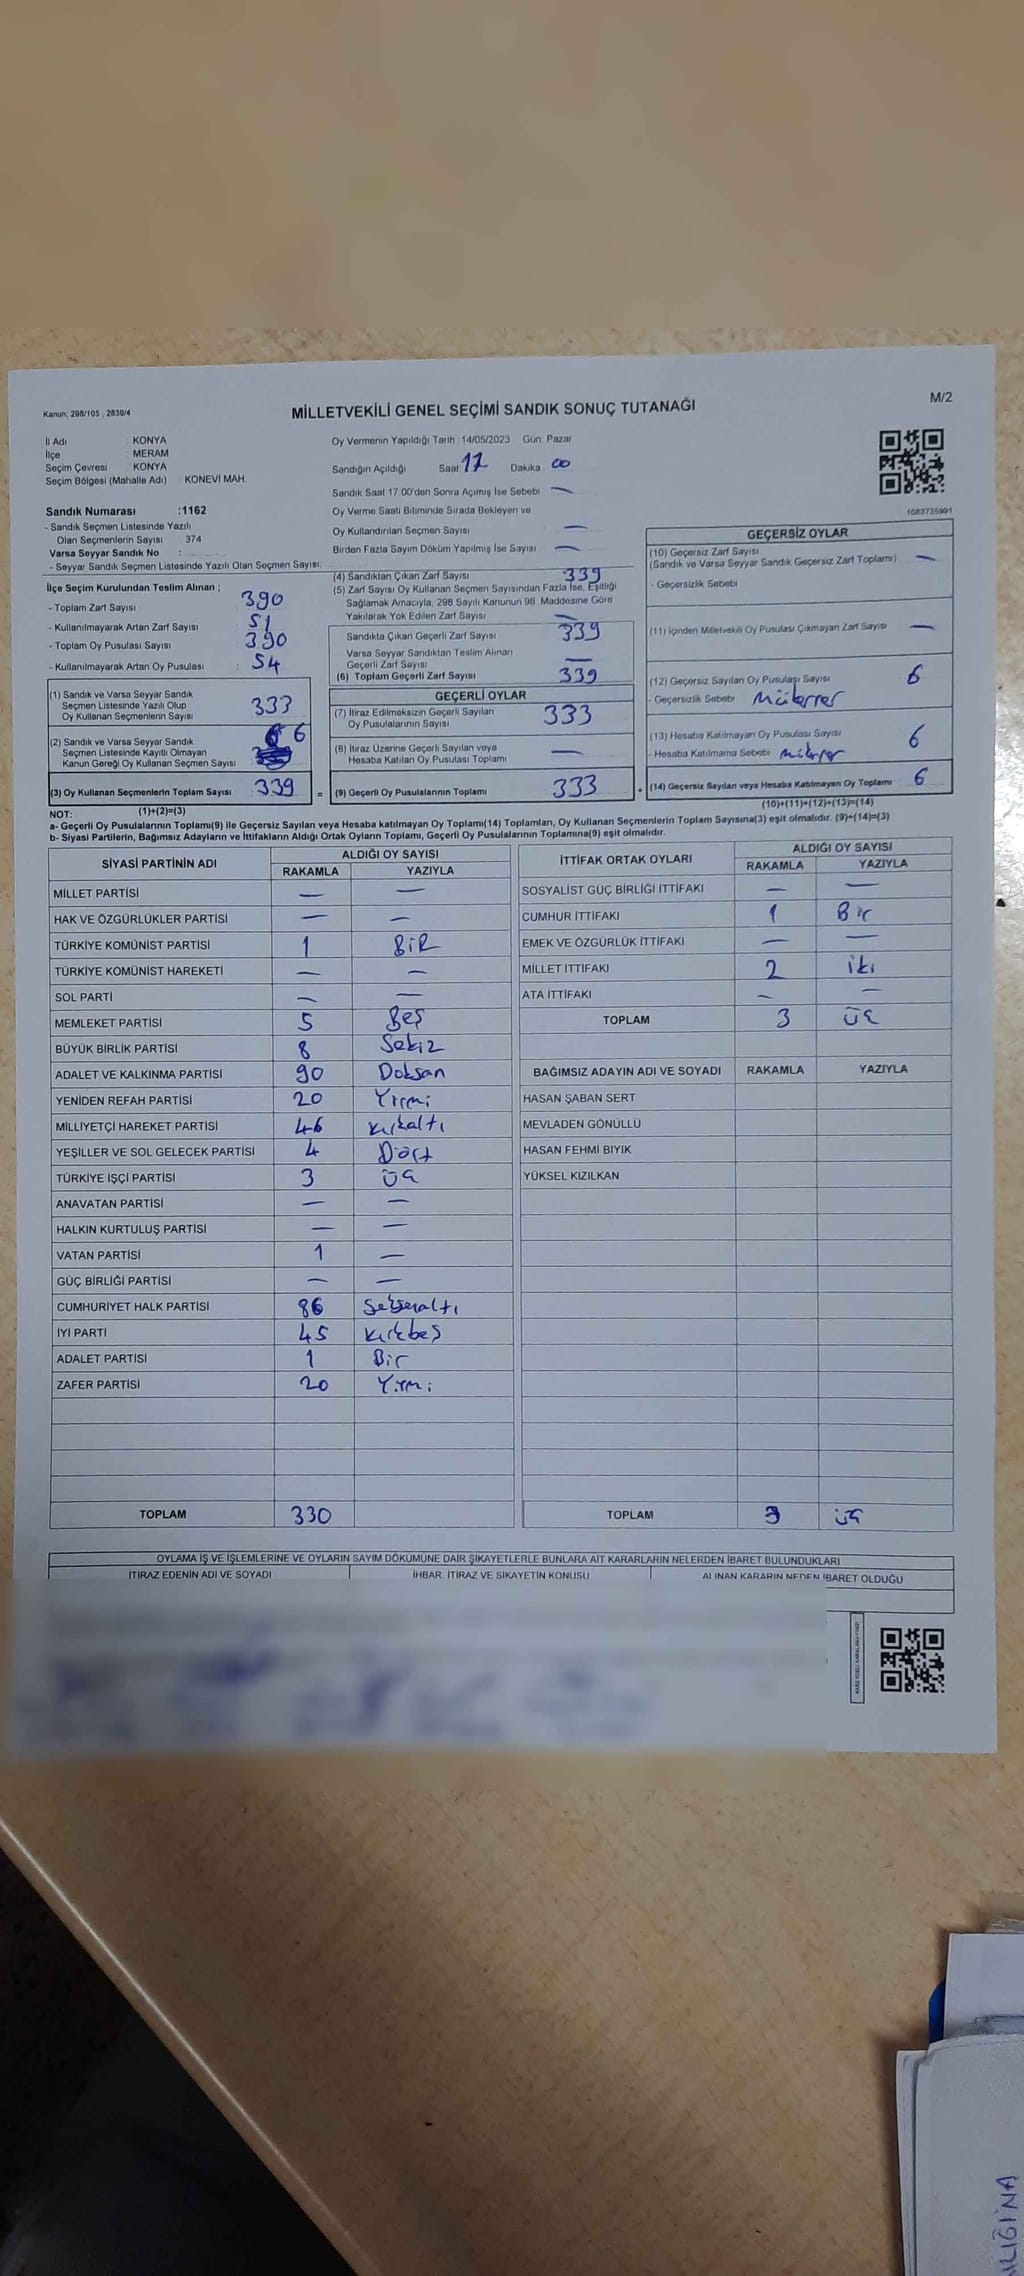 Kanun: 298/105 , 2839/4
MİLLETVEKİLİ GENEL SEÇİMİ SANDIK SONUÇ TUTANAĞI
M/2
İl Adı : KONYA
İlçe : MERAM
Seçim Çevresi : KONYA
Seçim Bölgesi (Mahalle Adı) : KONEVİ MAH.
Oy Vermenin Yapıldığı Tarih :14/05/2023 Gün: Pazar
Sandığın Açıldığı Saat: 17 Dakika : 00
Sandık Saat 17:00'den Sonra Açımış İse Sebebi —
Sandık Numarası :1162
- Sandık Seçmen Listesinde Yazılı
Olan Seçmenlerin Sayısı 374
Varsa Seyyar Sandık No :
- Seyyar Sandık Seçmen Listesinde Yazılı Olan Seçmen Sayısı:
Oy Verme Saati Bitiminde Sırada Bekleyen ve
Oy Kullandırılan Seçmen Sayısı —
Birden Fazla Sayım Döküm Yapılmış İse Sayısı —
1683735991
İlçe Seçim Kurulundan Teslim Alınan ;
- Toplam Zarf Sayısı 390
- Kullanılmayarak Artan Zarf Sayısı 51
- Toplam Oy Pusulası Sayısı 390
- Kullanılmayarak Artan Oy Pusulası : 54
(1) Sandık ve Varsa Seyyar Sandık
Seçmen Listesinde Yazılı Olup
Oy Kullanan Seçmenlerin Sayısı 333
(2) Sandık ve Varsa Seyyar Sandık
Seçmen Listesinde Kayıtlı Olmayan
Kanun Gereği Oy Kullanan Seçmen Sayısı 6
(3) Oy Kullanan Seçmenlerin Toplam Sayısı 339 =
(1)+(2)=(3)
(4) Sandıktan Çıkan Zarf Sayısı 339
(5) Zarf Sayısı Oy Kullanan Seçmen Sayısından Fazla İse, Eşitliği
Sağlamak Amacıyla, 298 Sayılı Kanunun 98. Maddesine Göre
Yakılarak Yok Edilen Zarf Sayısı —
Sandıkta Çıkan Geçerli Zarf Sayısı 339
Varsa Seyyar Sandıktan Teslim Alınan
Geçerli Zarf Sayısı —
(6) Toplam Geçerli Zarf Sayısı 339
GEÇERLİ OYLAR
(7) İtiraz Edilmeksizin Geçerli Sayılan
Oy Pusulalarının Sayısı 333
(8) İtiraz Üzerine Geçerli Sayılan veya
Hesaba Katılan Oy Pusulası Toplamı —
(9) Geçerli Oy Pusulalarının Toplamı 333 +
GEÇERSİZ OYLAR
(10) Geçersiz Zarf Sayısı
(Sandık ve Varsa Seyyar Sandık Geçersiz Zarf Toplamı) —
- Geçersizlik Sebebi
(11) İçinden Milletvekili Oy Pusulası Çıkmayan Zarf Sayısı —
(12) Geçersiz Sayılan Oy Pusulası Sayısı 6
- Geçersizlik Sebebi Mükerrer
(13) Hesaba Katılmayan Oy Pusulası Sayısı 6
- Hesaba Katılmama Sebebi
(14) Geçersiz Sayılan veya Hesaba Katılmayan Oy Toplamı 6
(10)+(11)+(12)+(13)=(14)
NOT:
a- Geçerli Oy Pusulalarının Toplamı(9) ile Geçersiz Sayılan veya Hesaba katılmayan Oy Toplamı(14) Toplamları, Oy Kullanan Seçmenlerin Toplam Sayısına(3) eşit olmalıdır. (9)+(14)=(3)
b- Siyasi Partilerin, Bağımsız Adayların ve İttifakların Aldığı Ortak Oyların Toplamı, Geçerli Oy Pusulalarının Toplamına(9) eşit olmalıdır.
SİYASİ PARTİNİN ADI ALDIĞI OY SAYISI
RAKAMLA YAZIYLA
MİLLET PARTİSİ — —
HAK VE ÖZGÜRLÜKLER PARTİSİ — —
TÜRKİYE KOMÜNİST PARTİSİ 1 BİR
TÜRKİYE KOMÜNİST HAREKETİ — —
SOL PARTİ — —
MEMLEKET PARTİSİ 5 Beş
BÜYÜK BİRLİK PARTİSİ 8 Sekiz
ADALET VE KALKINMA PARTİSİ 90 Doksan
YENİDEN REFAH PARTİSİ 20 Yirmi
MİLLİYETÇİ HAREKET PARTİSİ 46 kırkaltı
YEŞİLLER VE SOL GELECEK PARTİSİ 4 Dört
TÜRKİYE İŞÇİ PARTİSİ 3 üç
ANAVATAN PARTİSİ — —
HALKIN KURTULUŞ PARTİSİ — —
VATAN PARTİSİ 1 —
GÜÇ BİRLİĞİ PARTİSİ — —
CUMHURİYET HALK PARTİSİ 86 Seksenaltı
İYİ PARTİ 45 kırkbeş
ADALET PARTİSİ 1 Bir
ZAFER PARTİSİ 20 Yirmi
TOPLAM 330
İTTİFAK ORTAK OYLARI ALDIĞI OY SAYISI
RAKAMLA YAZIYLA
SOSYALİST GÜÇ BİRLİĞİ İTTİFAKI — —
CUMHUR İTTİFAKI 1 Bir
EMEK VE ÖZGÜRLÜK İTTİFAKI — —
MİLLET İTTİFAKI 2 iki
ATA İTTİFAKI — —
TOPLAM 3 üç
BAĞIMSIZ ADAYIN ADI VE SOYADI RAKAMLA YAZIYLA
HASAN ŞABAN SERT
MEVLADEN GÖNÜLLÜ
HASAN FEHMİ BIYIK
YÜKSEL KIZILKAN
TOPLAM 3 üç
OYLAMA İŞ VE İŞLEMLERİNE VE OYLARIN SAYIM DÖKÜMÜNE DAİR ŞİKAYETLERLE BUNLARA AİT KARARLARIN NELERDEN İBARET BULUNDUKLARI
İTİRAZ EDENİN ADI VE SOYADI İHBAR, İTİRAZ VE ŞİKAYETİN KONUSU ALINAN KARARIN NEDEN İBARET OLDUĞU